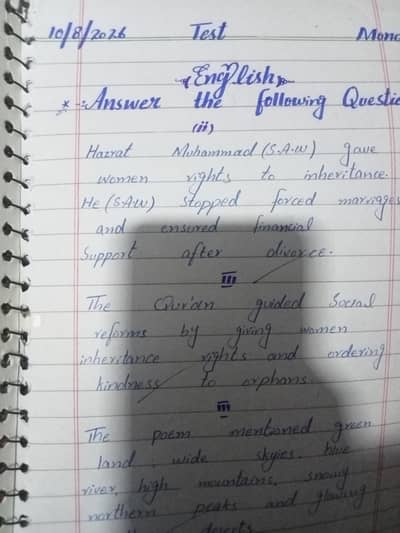 10/8/2026 Test Mond
English
Answer the following Questio
(ii)
Hazrat Muhammad (S.A.W) gave
women rights to inheritance.
He (S.A.W) stopped forced marriages
and ensured financial
Support after divorce.
III
The Qur'an guided Social
reforms by giving women
inheritance rights and ordering
kindness to orphans.
III
The poem mentioned green
land, wide skyies, blue
river, high mountains, snowy
northern peaks and glowing
deserts